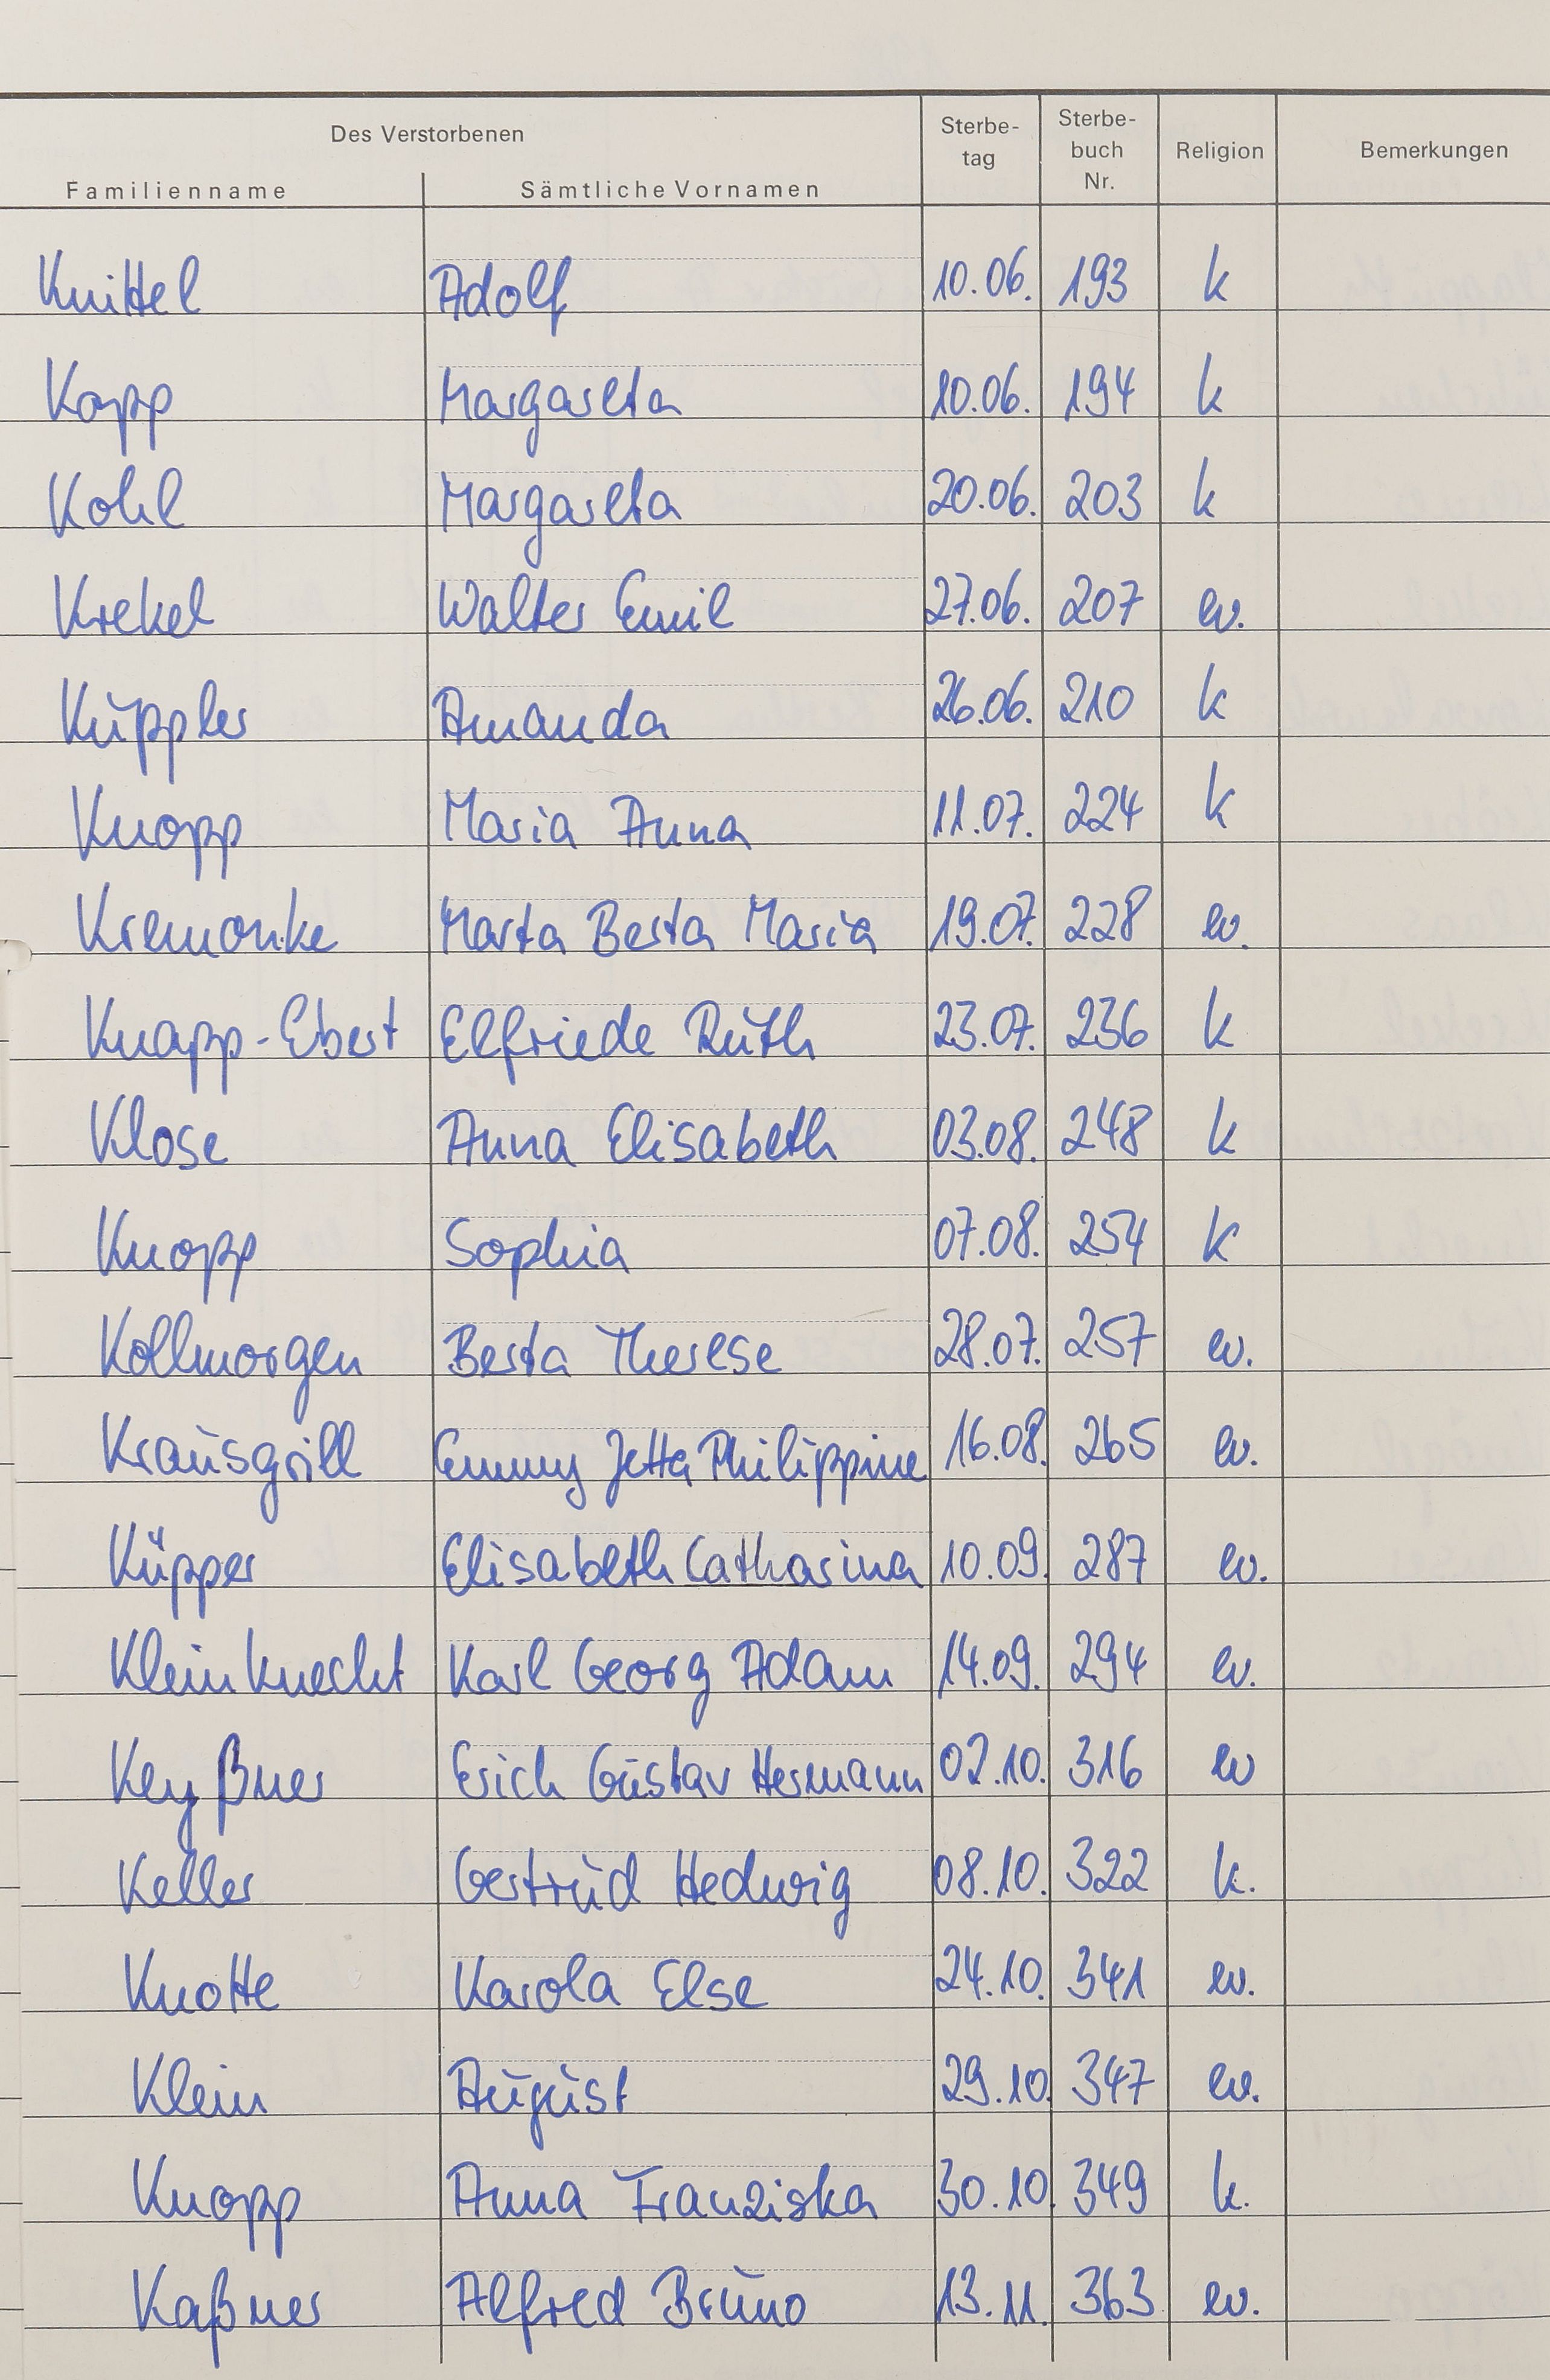 Des Verstorbenen Sterbe- Sterbe- Religion Bemerkungen
tag buch
Familienname Sämtliche Vornamen Nr.
Knittel Adolf 10.06. 193 k
Kopp Margareta 10.06. 194 k
Kohl Margareta 20.06. 203 k
Krekel Walter Emil 27.06. 207 ev.
Kuppler Amanda 26.06. 210 k
Knopp Maria Anna 11.07. 224 k
Kremonke Marta Berta Maria 19.07. 228 ev.
Knapp-Ebert Elfriede Ruth 23.07. 236 k
Klose Anna Elisabeth 03.08. 248 k
Knopp Sophia 07.08. 254 k
Kollmorgen Berta Therese 28.07. 257 ev.
Krausgrill Emmy Jetta Philippine 16.08. 265 ev.
Küpper Elisabeth Catharina 10.09. 287 ev.
Kleinknecht Karl Georg Adam 14.09. 294 ev.
Keyßner Erich Gustav Hermann 02.10. 316 ev
Keller Gertrud Hedwig 08.10. 322 k.
Knotte Karola Else 24.10. 341 ev.
Klein August 29.10. 347 ev.
Knopp Anna Franziska 30.10. 349 k.
Kaßner Alfred Bruno 13.11. 363 ev.